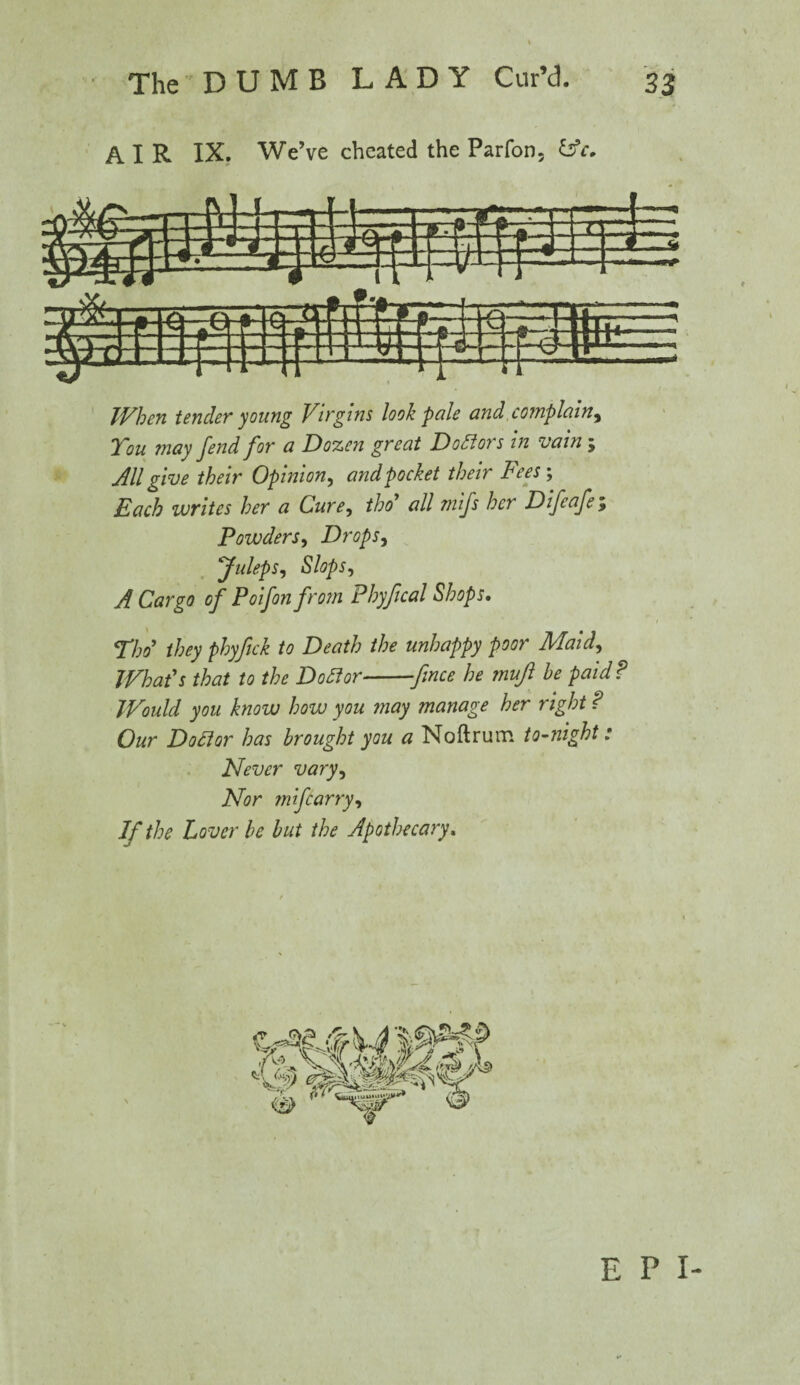 The DUMB LADY Cur’d. 33
AIR IX. We’ve cheated the Parſon, &c.
When tender young Virgins look pale and complain,
You may ſend for a Dozen great Doctors in vain;
All give their Opinion, and pocket their Fees;
Each writes her a Cure, tho’ all miſs her Diſeaſe;
Powders, Drops,
Juleps, Slops,
A Cargo of Poiſon from Phyſical Shops.
Tho’ they phyſick to Death the unhappy poor Maid,
What’s that to the Doctor——ſince he muſt be paid?
Would you know how you may manage her right?
Our Doctor has brought you a Noſtrum to-night:
Never vary,
Nor miſcarry,
If the Lover be but the Apothecary.
E P I-